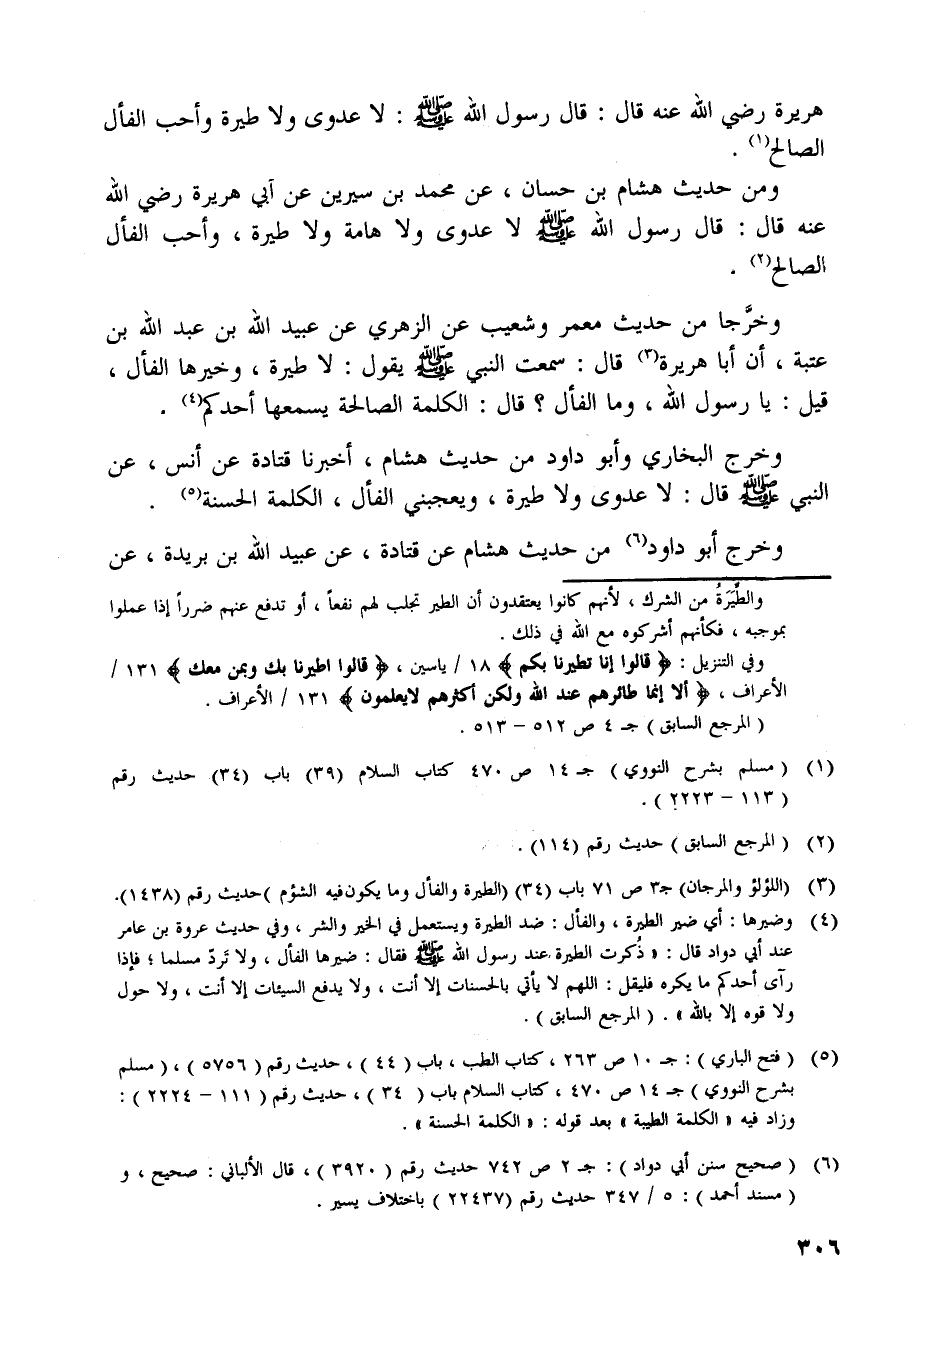 هريرة رضي الله عنه قال : قال رسول الله ﷺ : لا عدوى ولا طيرة وأحب الفأل
الصالح(١) .
ومن حديث هشام بن حسان ، عن محمد بن سيرين عن أبي هريرة رضي الله
عنه قال : قال رسول الله ﷺ لا عدوى ولا هامة ولا طيرة ، وأحب الفأل
الصالح(٢) .
وخرَّجا من حديث معمر وشعيب عن الزهري عن عبيد الله بن عبد الله بن
عتبة ، أن أبا هريرة(٣) قال : سمعت النبي ﷺ يقول : لا طيرة ، وخيرها الفأل ،
قيل : يا رسول الله ، وما الفأل ؟ قال : الكلمة الصالحة يسمعها أحدكم(٤) .
وخرج البخاري وأبو داود من حديث هشام ، أخبرنا قتادة عن أنس ، عن
النبي ﷺ قال : لا عدوى ولا طيرة ، ويعجبني الفأل ، الكلمة الحسنة(٥) .
وخرج أبو داود(٦) من حديث هشام عن قتادة ، عن عبيد الله بن بريدة ، عن
والطِّيَرَةُ من الشرك ، لأنهم كانوا يعتقدون أن الطير تجلب لهم نفعاً ، أو تدفع عنهم ضرراً إذا عملوا
بموجبه ، فكأنهم أشركوه مع الله في ذلك .
وفي التنزيل : ﴿ قالوا إنا تطيرنا بكم ﴾ ١٨ / ياسين ، ﴿ قالوا اطيرنا بك وبمن معك ﴾ ١٣١ /
الأعراف ، ﴿ ألا إنما طائرهم عند الله ولكن أكثرهم لايعلمون ﴾ ١٣١ / الأعراف .
( المرجع السابق ) جـ ٤ ص ٥١٢ – ٥١٣ .
(١) ( مسلم بشرح النووي ) جـ ١٤ ص ٤٧٠ كتاب السلام (٣٩) باب (٣٤) حديث رقم
( ١١٣ – ٢٢٢٣ ) .
(٢) ( المرجع السابق ) حديث رقم (١١٤) .
(٣) (اللؤلؤ والمرجان) جـ٣ ص ٧١ باب (٣٤) (الطيرة والفأل وما يكون فيه الشؤم )حديث رقم (١٤٣٨).
(٤) وضيرها : أي ضير الطيرة ، والفأل : ضد الطيرة ويستعمل في الخير والشر ، وفي حديث عروة بن عامر
عند أبي دواد قال : « ذُكرت الطيرة عند رسول الله ﷺ فقال : ضيرها الفأل ، ولا تَردّ مسلما ؛ فإذا
رآى أحدكم ما يكره فليقل : اللهم لا يأتي بالحسنات إلا أنت ، ولا يدفع السيئات إلا أنت ، ولا حول
ولا قوه إلا بالله » . ( المرجع السابق ) .
(٥) ( فتح الباري ) : جـ ١٠ ص ٢٦٣ ، كتاب الطب ، باب ( ٤٤ ) ، حديث رقم ( ٥٧٥٦ ) ، ( مسلم
بشرح النووي ) جـ ١٤ ص ٤٧٠ ، كتاب السلام باب ( ٣٤ ) ، حديث رقم ( ١١١ – ٢٢٢٤ ) :
وزاد فيه « الكلمة الطيبة » بعد قوله : « الكلمة الحسنة » .
(٦) ( صحيح سنن أبي دواد ) : جـ ٢ ص ٧٤٢ حديث رقم ( ٣٩٢٠ ) ، قال الألباني : صحيح ، و
( مسند أحمد ) : ٥ / ٣٤٧ حديث رقم (٢٢٤٣٧ ) باختلاف يسير .
٣٠٦